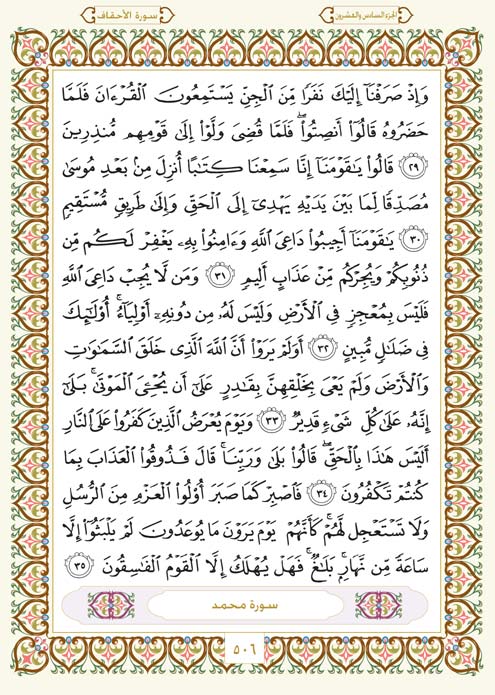 الجزء السادس والعشرون
سورة الأحقاف
وَإِذْ صَرَفْنَآ إِلَيْكَ نَفَرًا مِّنَ ٱلْجِنِّ يَسْتَمِعُونَ ٱلْقُرْءَانَ فَلَمَّا
حَضَرُوهُ قَالُوٓا۟ أَنصِتُوا۟ ۖ فَلَمَّا قُضِىَ وَلَّوْا۟ إِلَىٰ قَوْمِهِم مُّنذِرِينَ
٢٩ قَالُوا۟ يَٰقَوْمَنَآ إِنَّا سَمِعْنَا كِتَٰبًا أُنزِلَ مِنۢ بَعْدِ مُوسَىٰ
مُصَدِّقًا لِّمَا بَيْنَ يَدَيْهِ يَهْدِىٓ إِلَى ٱلْحَقِّ وَإِلَىٰ طَرِيقٍ مُّسْتَقِيمٍ
٣٠ يَٰقَوْمَنَآ أَجِيبُوا۟ دَاعِىَ ٱللَّهِ وَءَامِنُوا۟ بِهِۦ يَغْفِرْ لَكُم مِّن
ذُنُوبِكُمْ وَيُجِرْكُم مِّنْ عَذَابٍ أَلِيمٍ ٣١ وَمَن لَّا يُجِبْ دَاعِىَ ٱللَّهِ
فَلَيْسَ بِمُعْجِزٍ فِى ٱلْأَرْضِ وَلَيْسَ لَهُۥ مِن دُونِهِۦٓ أَوْلِيَآءُ ۚ أُو۟لَٰٓئِكَ
فِى ضَلَٰلٍ مُّبِينٍ ٣٢ أَوَلَمْ يَرَوْا۟ أَنَّ ٱللَّهَ ٱلَّذِى خَلَقَ ٱلسَّمَٰوَٰتِ
وَٱلْأَرْضَ وَلَمْ يَعْىَ بِخَلْقِهِنَّ بِقَٰدِرٍ عَلَىٰٓ أَن يُحْۦِىَ ٱلْمَوْتَىٰ ۚ بَلَىٰٓ
إِنَّهُۥ عَلَىٰ كُلِّ شَىْءٍ قَدِيرٌ ٣٣ وَيَوْمَ يُعْرَضُ ٱلَّذِينَ كَفَرُوا۟ عَلَى ٱلنَّارِ
أَلَيْسَ هَٰذَا بِٱلْحَقِّ ۖ قَالُوا۟ بَلَىٰ وَرَبِّنَا ۚ قَالَ فَذُوقُوا۟ ٱلْعَذَابَ بِمَا
كُنتُمْ تَكْفُرُونَ ٣٤ فَٱصْبِرْ كَمَا صَبَرَ أُو۟لُوا۟ ٱلْعَزْمِ مِنَ ٱلرُّسُلِ
وَلَا تَسْتَعْجِل لَّهُمْ ۚ كَأَنَّهُمْ يَوْمَ يَرَوْنَ مَا يُوعَدُونَ لَمْ يَلْبَثُوٓا۟ إِلَّا
سَاعَةً مِّن نَّهَارٍۭ ۚ بَلَٰغٌ ۚ فَهَلْ يُهْلَكُ إِلَّا ٱلْقَوْمُ ٱلْفَٰسِقُونَ ٣٥
سورة محمد
٥٠٦